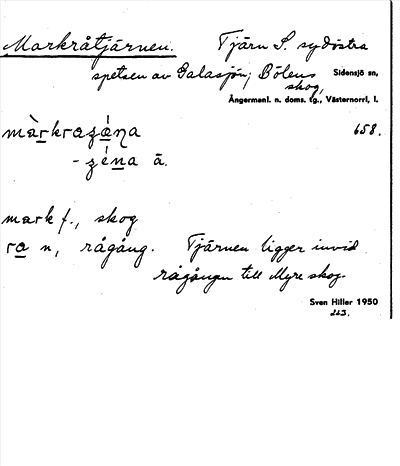 Markråtjärnen. Tjärn S. sydöstra
spetsen av Galasjön; Bölens Sidensjö sn,
skog, Ångermanl. n. doms. tg., Västernorrl. l.
658.
- ā.
mark f., skog
ra n, rågång. Tjärnen ligger invid
rågången till Myre skog.
Sven Hiller 1950
223.